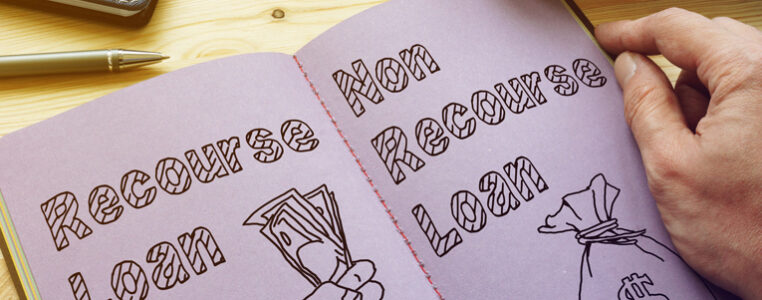 Recourse
Loan
Non
Recourse
Loan
$